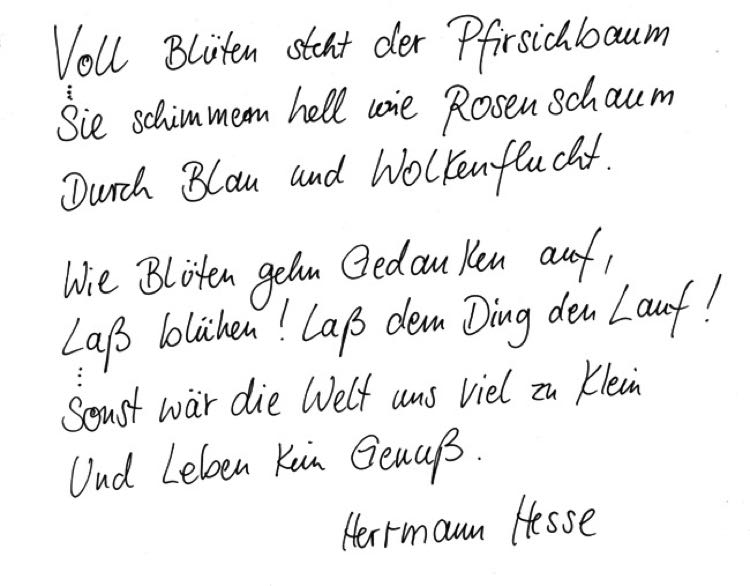 Voll Blüten steht der Pfirsichbaum
⋮
Sie schimmern hell wie Rosenschaum
Durch Blau und Wolkenflucht.
Wie Blüten gehn Gedanken auf,
Laß blühen! Laß dem Ding den Lauf!
⋮
Sonst wär die Welt uns viel zu klein
Und Leben kein Genuß.
Herrmann Hesse